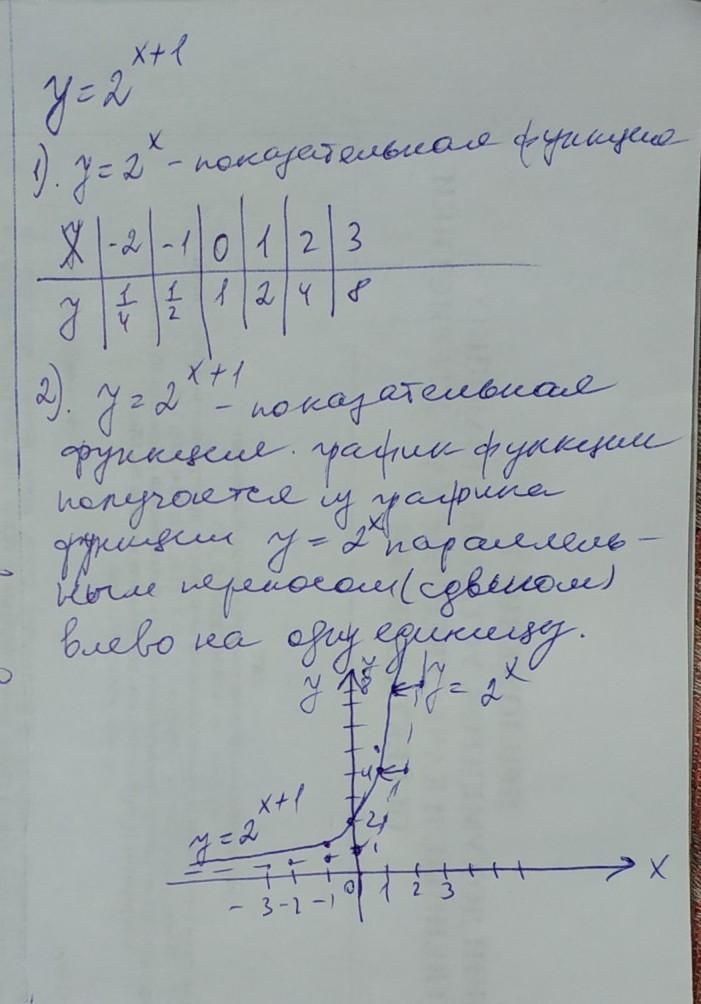 y = 2^{x+1}
1). y = 2^x – показательная функция
X | -2 | -1 | 0 | 1 | 2 | 3
y | 1/4 | 1/2 | 1 | 2 | 4 | 8
2). y = 2^{x+1} – показательная
функция. график функции
получается из графика
функции y = 2^x параллель–
ным переносом (сдвигом)
влево на одну единицу.
y 8 y = 2^x
4
y = 2^{x+1} 2
1
X
-3 -2 -1 0 1 2 3